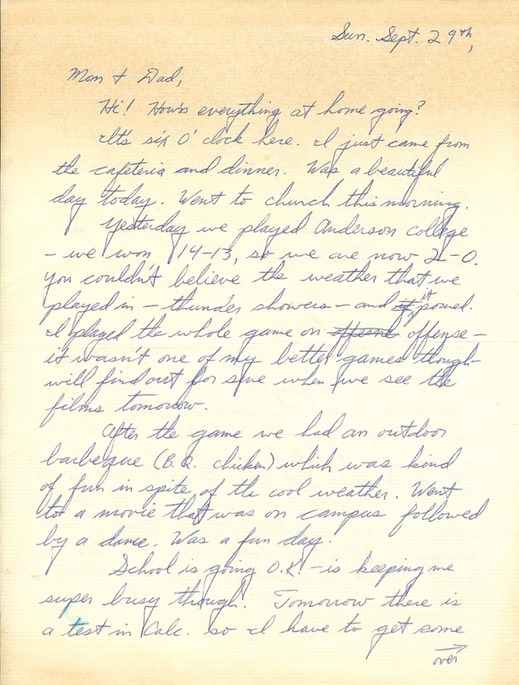 Sun. Sept. 29th,
Mom & Dad,
Hi! How's everything at home going?
It's six O' clock here. I just came from
the cafeteria and dinner. Was a beautiful
day today. Went to church this morning.
Yesterday we played Anderson college
- we won 14-13, so we are now 2-0.
You couldn't believe the weather that we
played in - thunder showers - and it poured.
I played the whole game on offense -
it wasn't one of my better games though -
will find out for sure when we see the
films tomorrow.
After the game we had an outdoor
barbeque (B.Q. chicken) which was kind
of fun in spite of the cool weather. Went
to a movie that was on campus followed
by a dance. Was a fun day.
School is going O.K. - is keeping me
super busy though! Tomorrow there is
a test in Calc. so I have to get some
over